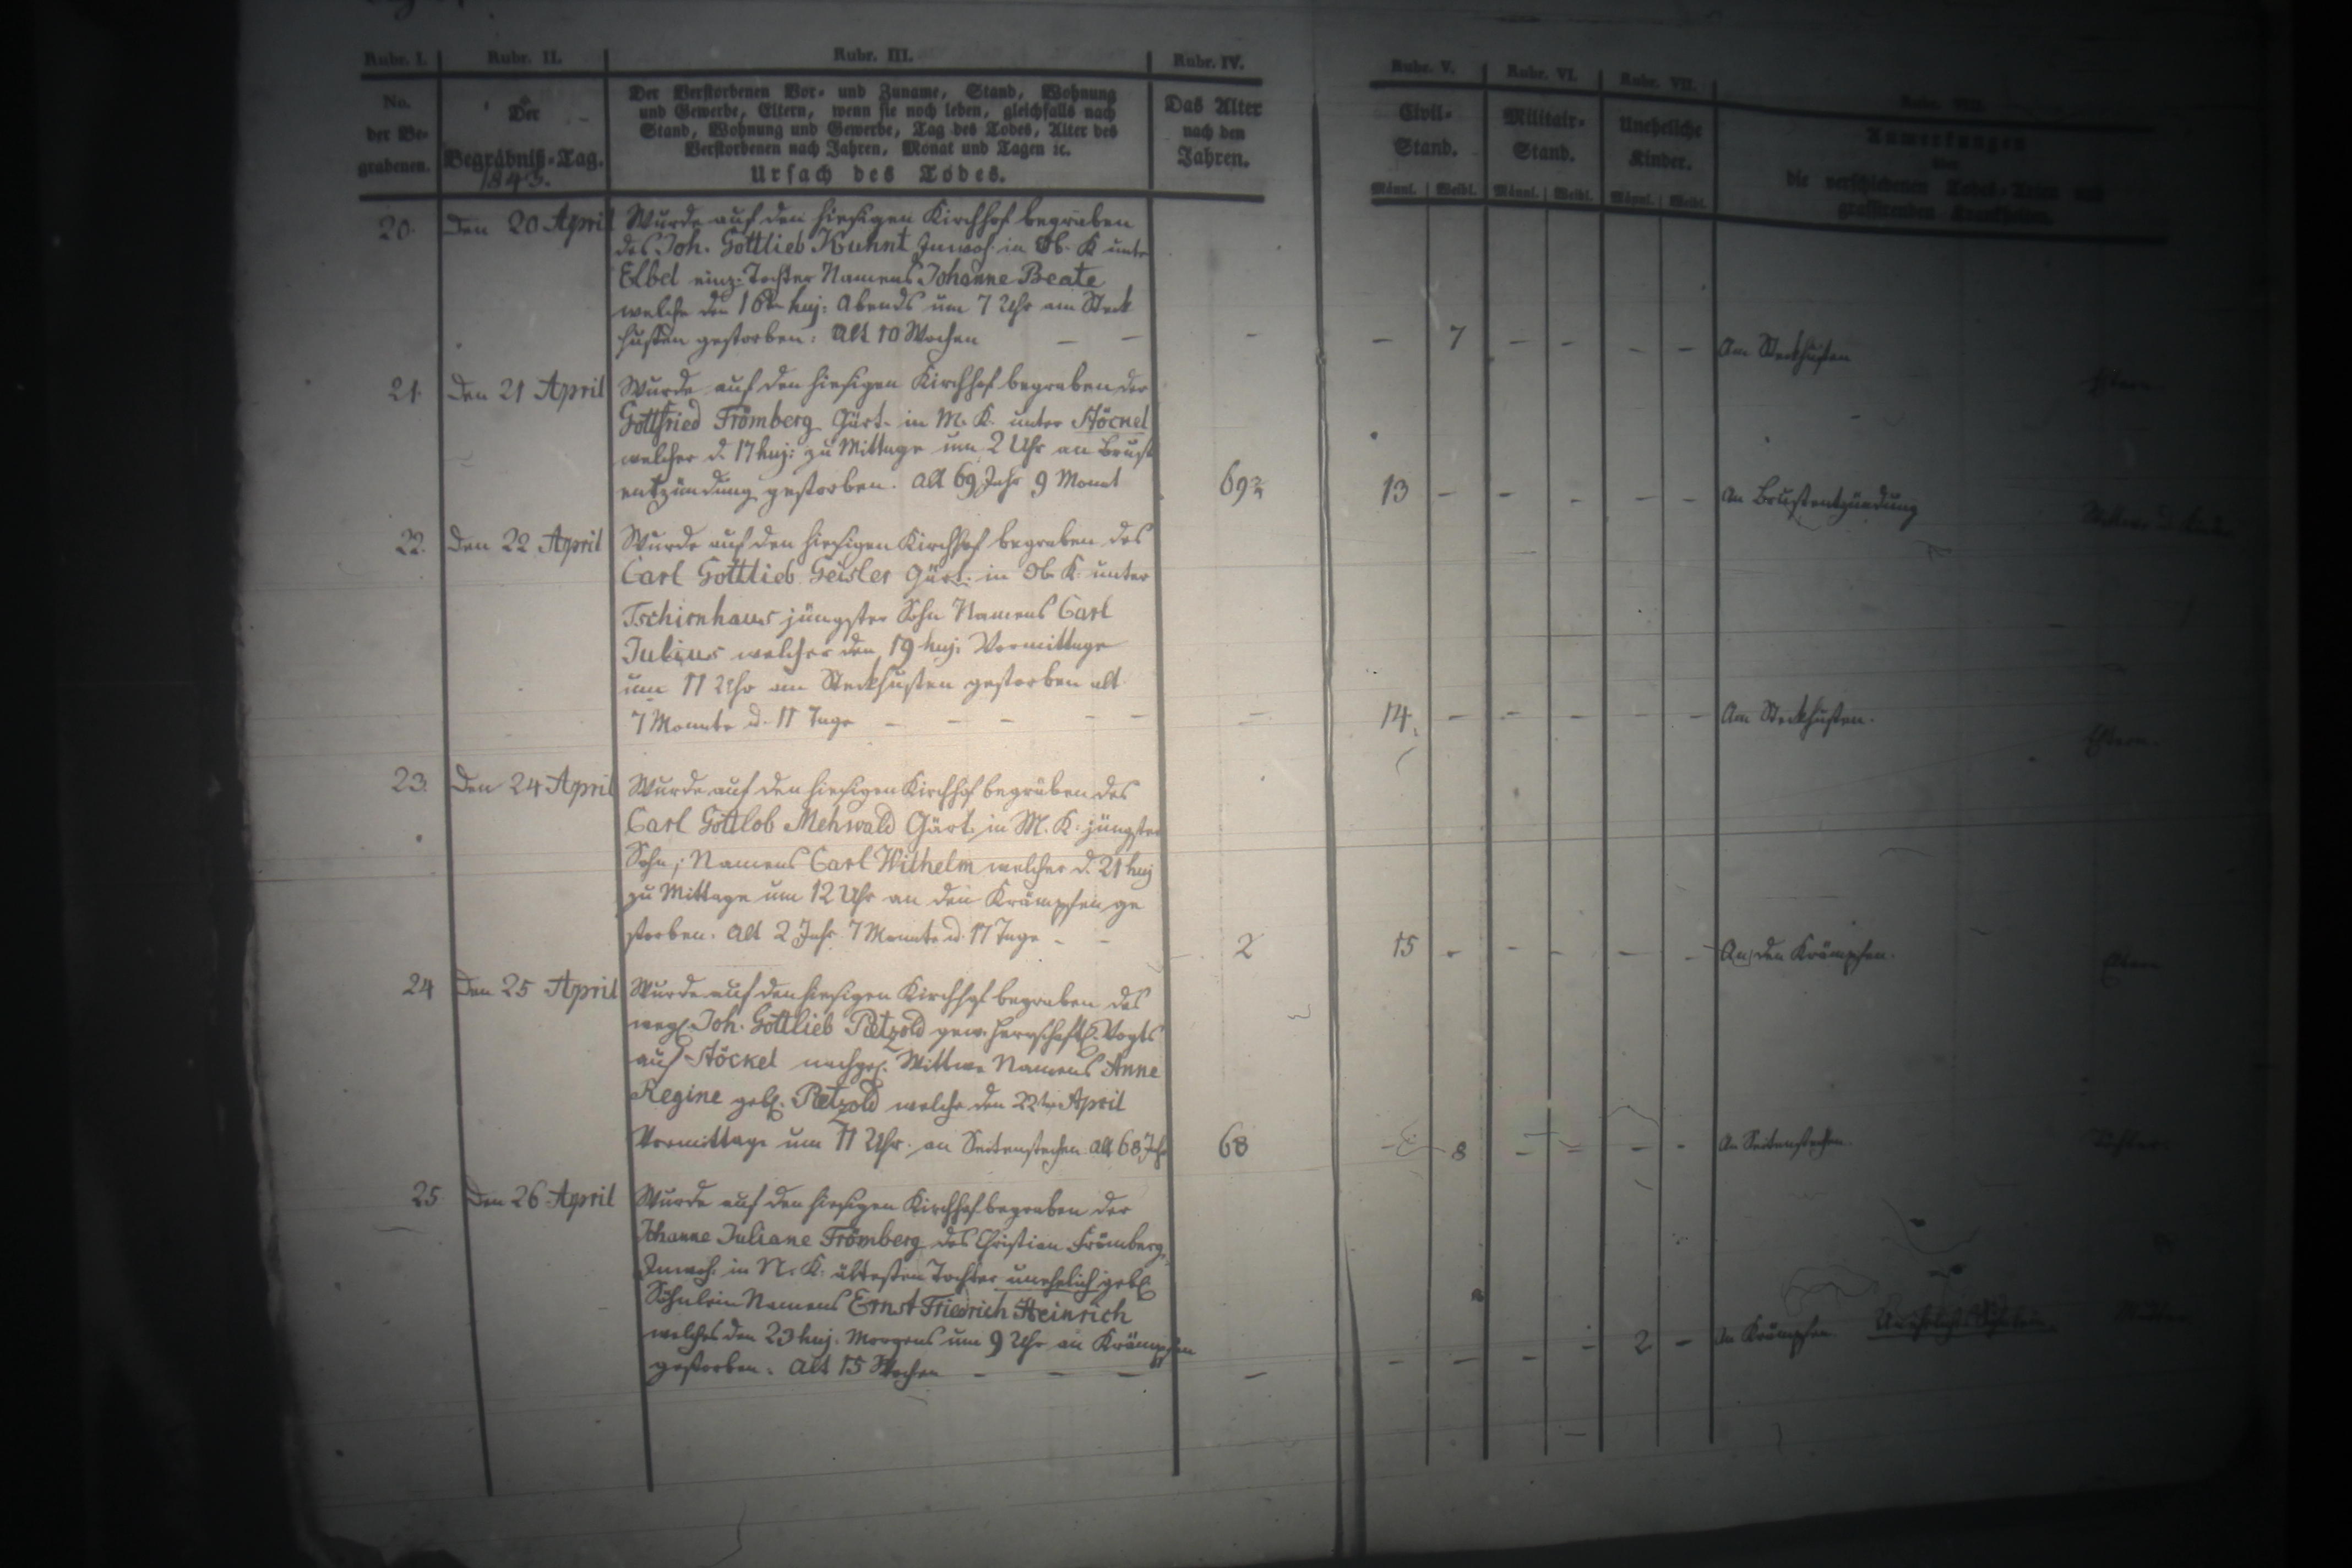 Rubr. I. Rubr. II. Rubr. III. Rubr. IV. Rubr. V. Rubr. VI. Rubr. VII.
No. der Begrabenen.
Der Begräbniß-Tag.
1843.
Der Verstorbenen Vor- und Zuname, Stand, Wohnung
und Gewerbe, Eltern, wenn sie noch leben, gleichfalls nach
Stand, Wohnung und Gewerbe, Tag des Todes, Alter des
Verstorbenen nach Jahren, Monat und Tagen ꝛc.
Ursach des Todes.
Das Alter
nach den
Jahren.
Civil-
Stand.
Männl. Weibl.
Militair-
Stand.
Männl. Weibl.
Uneheliche
Kinder.
Männl. Weibl.
Anmerkungen
über
die verschiedenen Todes-Arten und
grassirenden Krankheiten.
20. Den 20 April Wurde auf den hiesigen Kirchhof begraben
des Joh. Gottlieb Kuhnt Inwoh. in Ob. K unter
Elbel einz. Tochter Namens Johanne Beate
welche den 16ten huj: Abends um 7 Uhr am Steck
husten gestorben: Alt 10 Wochen — — - — 7 — - - — Am Steckhusten Eltern
21. Den 21 April Wurde auf den hiesigen Kirchhof begraben der
Gottfried Frömberg Gärt. in M. K. unter Stöckel
welcher d. 17 huj: zu Mittage um 2 Uhr an Brust
entzündung gestorben. Alt 69 Jahr 9 Monat 69¾ 13 — - - - - An Brustentzündung
22. Den 22 April Wurde auf den hiesigen Kirchhof begraben des
Carl Gottlieb Geisler Gärt. in Ob. K. unter
Tschirnhaus jüngster Sohn Namens Carl
Julius welcher den 19 huj: Vormittage
um 11 Uhr am Steckhusten gestorben alt
7 Monate u. 11 Tage - - - - - — 14. - - - - - Am Steckhusten. Eltern.
23. Den 24 April Wurde auf den hiesigen Kirchhof begraben des
Carl Gottlob Mehwald Gärt. in M. K: jüngster
Sohn, Namens Carl Wilhelm welcher d. 21 huj
zu Mittage um 12 Uhr an den Krämpfen ge
storben. Alt 2 Jahr 7 Monate u. 17 Tage - - 2 15 - - - - - An den Krämpfen. Eltern
24 Den 25 April Wurde auf den hiesigen Kirchhof begraben des
Joh. Gottlieb Pætzold gew. herrschaftl. Vogts
auf Stöckel nachgel. Wittwe Namens Anne
Regine geb. Pætzold welche den 22ten April
Vormittage um 11 Uhr an Seitenstechen Alt 68 Jahr 68 - 8 - - - - An Seitenstechen. Tochter
25 Den 26 April Wurde auf den hiesigen Kirchhof begraben der
Johanne Juliane Frömberg des Christian Frömberg,
Inwoh. in N. K. ältesten Tochter unehelich geb.
Söhnlein Namens Ernst Friedrich Heinrich
welches den 23 huj. Morgens um 9 Uhr an Krämpfen
gestorben. Alt 15 Wochen - - - — - - - - 2 - An Krämpfen